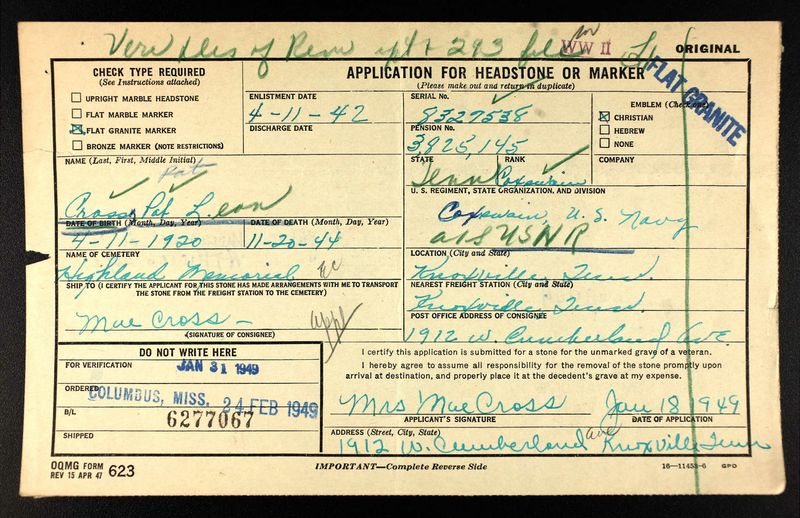 of Renv 293
WW II
ORIGINAL
FLAT GRANITE
CHECK TYPE REQUIRED
(See Instructions attached)
UPRIGHT MARBLE HEADSTONE
FLAT MARBLE MARKER
FLAT GRANITE MARKER
BRONZE MARKER (NOTE RESTRICTIONS)
APPLICATION FOR HEADSTONE OR MARKER
(Please make out and return in duplicate)
ENLISTMENT DATE
4-11-42
DISCHARGE DATE
SERIAL No.
8327538
PENSION No.
3,825,145
EMBLEM (Check one)
CHRISTIAN
HEBREW
NONE
NAME (Last, First, Middle Initial)
Pat
Cross Pat L.eon
STATE
Tenn
RANK
Coxswain
COMPANY
U. S. REGIMENT, STATE ORGANIZATION, AND DIVISION
Coxswain, U.S. Navy
USNR
DATE OF BIRTH (Month, Day, Year)
4-11-1920
DATE OF DEATH (Month, Day, Year)
11-20-44
NAME OF CEMETERY
Highland Memorial
LOCATION (City and State)
Knoxville Tenn.
SHIP TO (I CERTIFY THE APPLICANT FOR THIS STONE HAS MADE ARRANGEMENTS WITH ME TO TRANSPORT THE STONE FROM THE FREIGHT STATION TO THE CEMETERY)
Mae Cross -
(SIGNATURE OF CONSIGNEE)
appl
NEAREST FREIGHT STATION (City and State)
Knoxville Tenn.
POST OFFICE ADDRESS OF CONSIGNEE
1912 W. Cumberland Ave.
DO NOT WRITE HERE
FOR VERIFICATION
JAN 31 1949
ORDERED
COLUMBUS, MISS. 24 FEB 1949
B/L
6277067
SHIPPED
I certify this application is submitted for a stone for the unmarked grave of a veteran.
I hereby agree to assume all responsibility for the removal of the stone promptly upon
arrival at destination, and properly place it at the decedent's grave at my expense.
Mrs Mae Cross
APPLICANT'S SIGNATURE
Jan 18 1949
DATE OF APPLICATION
ADDRESS (Street, City, State)
1912 W. Cumberland ave Knoxville Tenn
OQMG FORM
REV 15 APR 47 623
IMPORTANT—Complete Reverse Side
16—11453-6 GPO